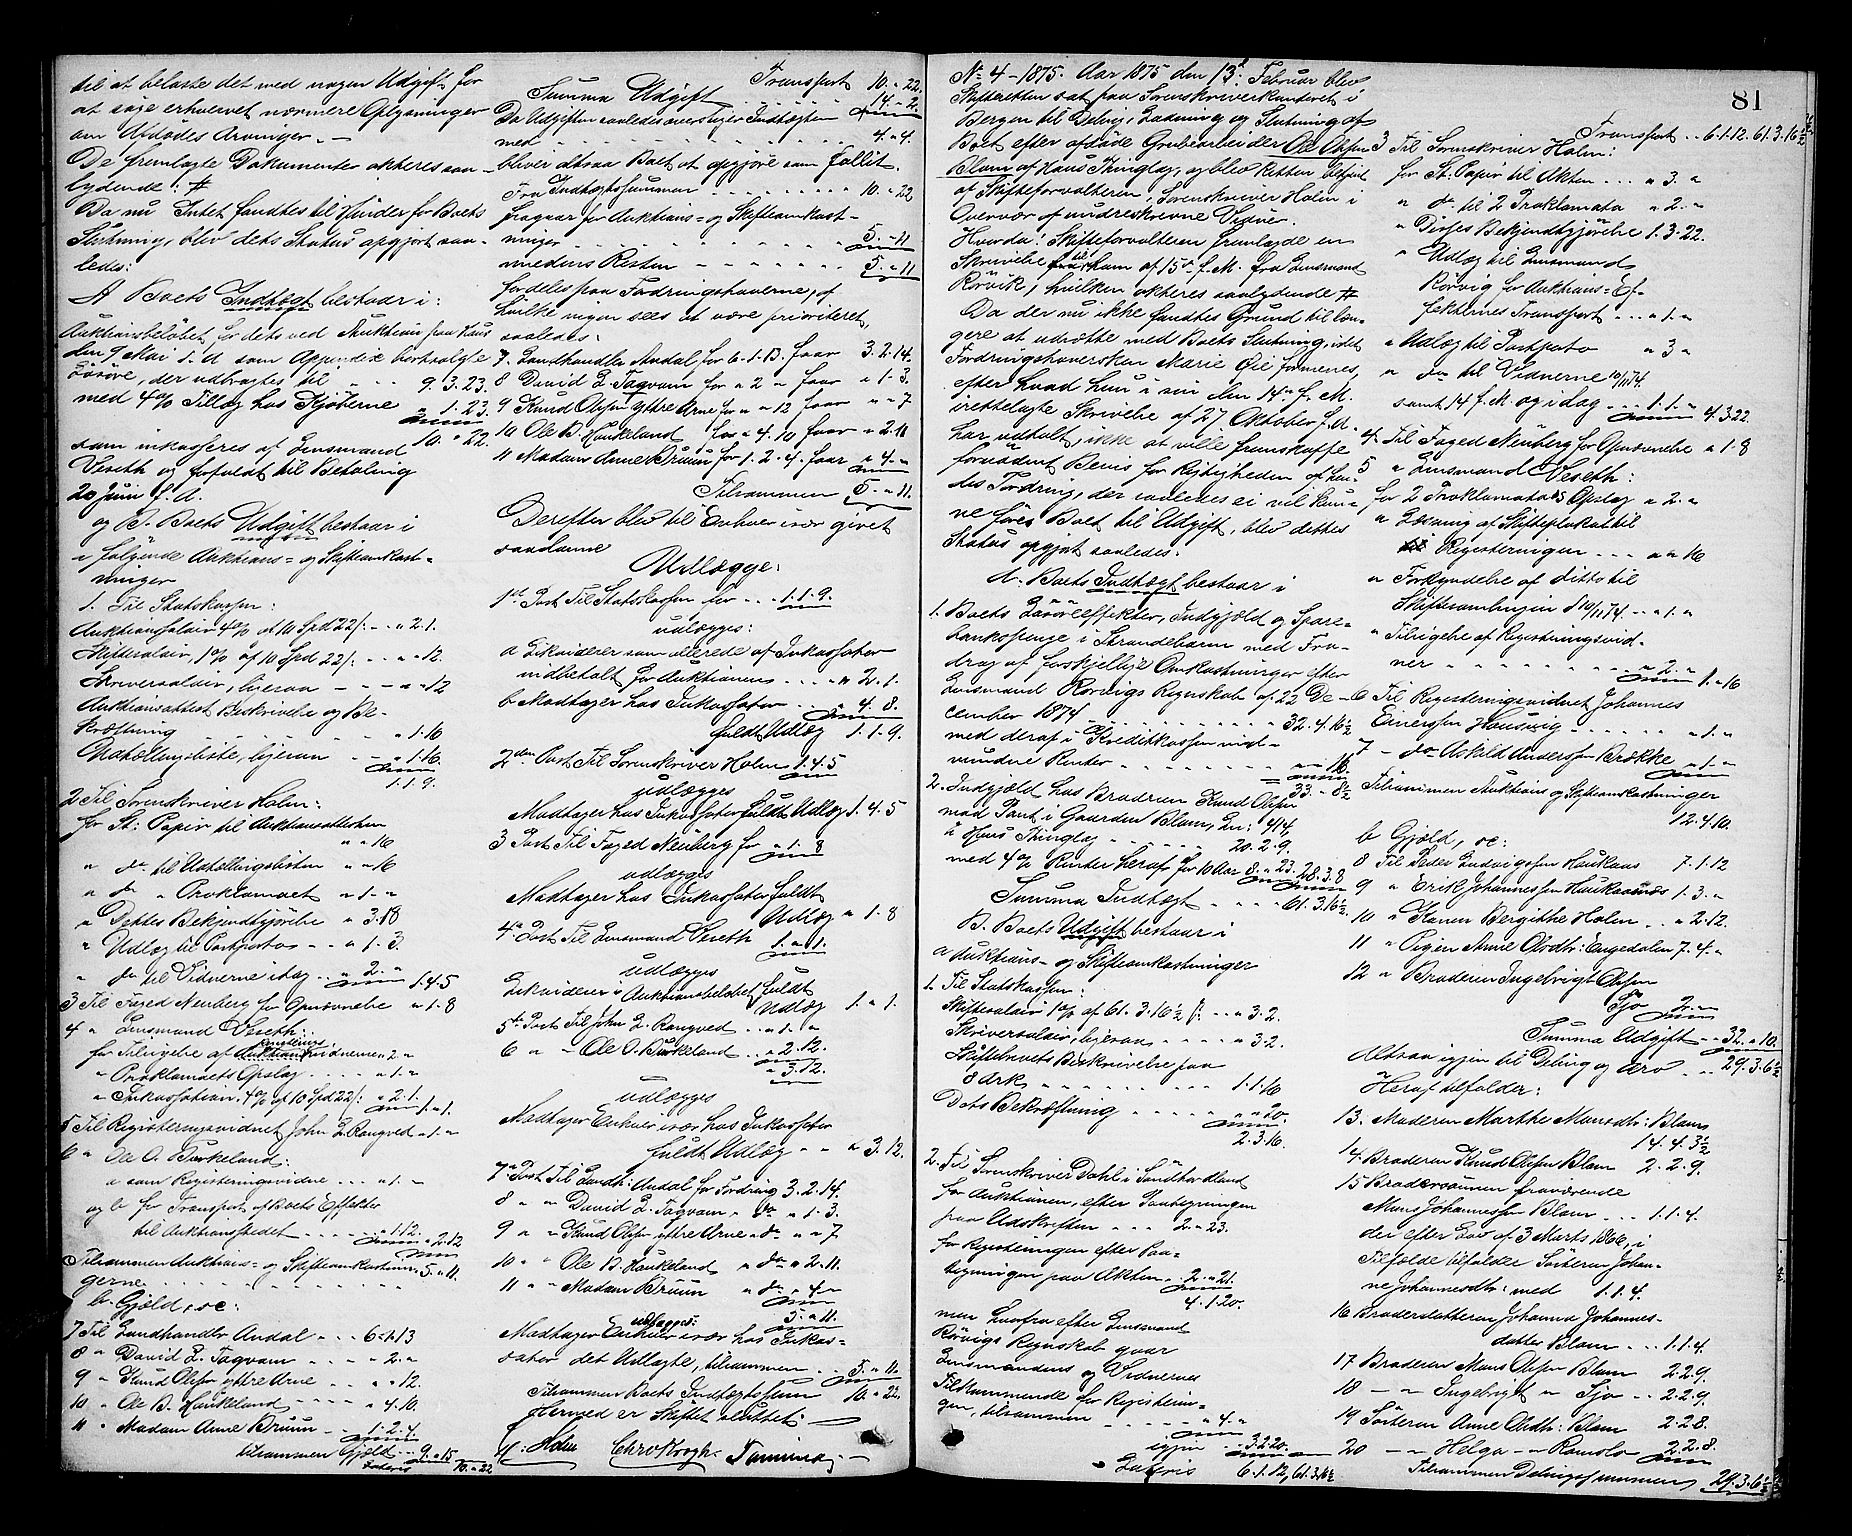 til at belaste det med nogen Udgift for
at søge erhvervet nærmere Oplysninger
om Afdødes Arvinger. —
De fremlagte Dokumenter akteres saa-
lydende: #
Da nu Intet fandtes til Hinder for Boets
Slutning, blev dets Status opgjort saa-
ledes:
A Boets Indtægt bestaar i:
Auktionsbeløbet for dets ved Auktion paa Haus
den 9 Mai f. A. som Appendix bortsolgte
Løsøre, der udbragtes til 9.3.23.
med 4% Tillæg hos Kjøberne " 1.23.
10. " 22.
som inkasseres af Lensmand
Veseth og forfaldt til Betaling
20 Juni f. A.
og B. Boets Udgift bestaar i
a følgende Auktions- og Skifteomkost-
ninger
1. Til Statskassen:
Auktionssalair 4% af 10 Spd 22/: " 2.1.
Skiftesalair, 1% af 10 Spd 22/: " " 12.
Skriversalair, ligesaa " " 12
Auktionsattest Beskrivelse og Be-
kræftning " 1.16
Udstællingsliste, ligesaa " 1.16.
1.1.9.
2 Til Sorenskriver Holm:
for St: Papir til Auktionsattesten " " 16
" do til Udstællingslisten " " 16
" do " Proklamaet " 1. "
" Dettes Bekjendtgjørelse " 3.18
" Udlæg til Postporto " 1.3.
" do til Vidnerne idag " 2. " 1.4.5
3 Til Foged Neuberg for Opnævnelse " 1.8
4 " Lensmand Veseth:
for Tilsigelse af vidnerne " 2 "
" Proklamaets Opslag " 1. "
" Inkassation 4% af 10 Spd 22/: " 2.1. 1. " 1.
5 Til Registeringsvidnet John L. Rangved " 1. "
6 " Ole O. Burkeland:
a som Registeringsvidne " 1. "
og b for Transport af Boets Effekter
til Auktionsstedet " 1.12. " 2.12
Tilsammen Auktions- og Skifteomkostnin- 5. " 11.
gerne
b. Gjæld, sc:
7 Til Landhandler Andal 6.1.13
8 " David L. Tagvam " 2. "
9 " Knud Olsen yttre Arne " " 12.
10 " Ole B. Haukeland " 4.10.
11 " Madam Anne Bruun 1.2.4.
tilsammen Gjæld 9. " 15
Lateris 10. " 22
Transport 10. " 22.
Summa Udgift 14. " 2.
Da Udgiften saaledes overstiger Indtægten
med 4. " 4.
bliver altsaa Boet at opgjøre som fallit.
Fra Indtægtssummen 10. " 22
fragaar for Auktions- og Skifteomkost-
ninger 5. " 11
medens Resten 5. " 11
fordeles paa Fordringshaverne, af
hvilke ingen sees at være prioriteret,
saaledes:
7 Landhandler Andal for 6.1.13. faar 3.2.14.
8 David L. Tagvam for " 2 " faar " 1.3.
9 Knud Olsen yttre Arne for " " 12 faar " " 7
10 Ole B. Haukeland for " 4.10 faar " 2.11
11 Madam Anne Bruun for 1.2.4. faar " 4. "
Tilsammen 5. " 11.
Derefter blev til Enhver især givet
saadanne
Udlægge:
1st Post Til Statskassen for 1.1.9.
udlægges:
a Likviderer som allerede af Inkassator
indbetalt for Auktionen " 2.1.
b Modtager hos Inkassator " 4.8.
fuldt Udlæg 1.1.9.
2den Post Til Sorenskriver Holm 1.4.5
udlægges
Modtager hos Inkassator fuldt Udlæg 1.4.5
3 Post Til Foged Neuberg for " 1.8
udlægges
Modtager hos Inkassator fuldt
Udlæg " 1.8
4 Post Til Lensmand Veseth 1. " 1.
udlægges
Likviderer i Auktionsbeløbet fuldt
Udlæg 1. " 1.
5te Post Til John L. Rangved " 1. "
6 " " Ole O. Burkeland " 2.12.
" 3.12.
udlægges
Modtager Enhver især hos Inkassator
fuldt Udlæg " 3.12.
7 Post Til Landh: Andal for Fordring 3.2.14.
8 " " David L. Tagvam " do " 1.3.
9 " " Knud Olsen yttre Arne " do " " 7
10 " " Ole B. Haukeland " do " 2.11.
11 " " Madam Bruun " do " 4 "
5. " 11.
udlægges:
Modtager Enhver især hos Inkas-
sator det Udlagte, tilsammen 5. " 11.
Tilsammen Boets Indtægtssum 10. " 22.
Hermed er Skiftet sluttet. —
Holm Chr. Krogh.
81
No 4 - 1875. Aar 1875 den 13de Februar blev
Skifteretten sat paa Sorenskriverkontoret i
Bergen til Deling, Lodning og Slutning af
Boet efter afdøde Grubearbeider Ole Olsen
Blom af Haus Thinglag, og blev Retten betjent
af Skifteforvalteren, Sorenskriver Holm i
Overvær af undreskrevne Vidner.
Hvorda: Skifteforvalteren fremlagde en
Skrivelse til ham af 15de f. M. fra Lensmand
Rørvik, hvilken akteres saalydende #
Da der nu ikke fandtes Grund til læn-
gere at udsætte med Boets Slutning, idet
Fordringshaversken Marie Øie formenes,
efter hvad hun i sin den 14de f. M.
irettelagte Skrivelse af 27 Oktober f. A.
har udtalt, ikke at ville fremskaffe
fornødent Bevis for Rigtigheden af hen-
des Fordring, der saaledes ei vil kun-
ne føres Boet til Udgift, blev dettes
Status opgjort saaledes:
A. Boets Indtægt bestaar i
1. Boets Løsøreeffekter, Indgjæld og Spare-
bankspenge i Strandebarm med Fra-
drag af forskjellige Omkostninger efter
Lensmand Rørvigs Regnskab af 22 De-
cember 1874 32.4.16½
med deraf i Kreditkassen ind-
vundne Renter " " 16.
33. " 8½
2. Indgjæld hos Broderen Knud Olsen
mod Pant i Gaarden Blom, Ln: 414,
i Haus Thinglag 20.2.9.
med 4% Renter heraf for 10 Aar 8. " 23. 28.3.8
Summa Indtægt 61.3.16½
B. Boets Udgift bestaar i
a Auktions- og Skifteomkostninger
1. Til Statskassen:
Skiftesalair 1% af 61.3.16½ /: " 3.2.
Skriversalair, ligesaa " 3.2.
Skiftebrevets Beskrivelse paa
8 Ark 1.1.16
Dets Bekræftning " " 20.
2.3.16.
2. Til Sorenskriver Dahl i Søndhordland
for Auktionen, efter Paategningen
paa Udskriften 2. " 23.
for Registeringen efter Paa-
tegningen paa Akten 2. " 21.
4.1.20.
men hvorfra efter Lensmand
Rørvigs Regnskab gaar
Lensmandens og Vidnernes
Tilkommende for Registerin-
gen, tilsammen " 4. "
igjen 3.2.20.
Lateris 6.1.12, 61.3.16½
Transport 6.1.12. 61.3.16½
3 Til Sorenskriver Holm:
for St. Papir til Akten " 3. "
" do til 2 Proklamata " 2. "
" Disses Bekjendtgjørelse 1.3.22.
" Udlæg til Lensmand
Rørvig for Auktions-Ef-
fekternes Transport " 1. "
" Udlæg til Postporto " 3 "
" do til Vidnerne 10/11 74.
samt 14 f. M. og idag 1.1. " 4.3.22.
4 Til Foged Neuberg for Opnævnelse " 1.8
5 " Lensmand Veseth:
for 2 Proklamata's Opslag " 2. "
" Læsning af Skifteplakat til
Registeringen " " 16
" Forkyndelse af ditto til
Skiftesamlingen d 10/11 74. " 1. "
" Tilsigelse af Registeringsvid-
ner " 2. " 1. " 16
6 Til Registeringsvidnet Johannes
Einersen Hausvig " 1. "
7 — do Askild Andersen Brække " 1. "
Tilsammen Auktions og Skifteomkostninger
12.4.10.
b Gjæld, sc:
8 Til Peder Ludvigsen Haukaas 7.1.12
9 " Erik Johannessen Haukaanæs 1.3. "
10 " Karen Bergithe Holm " 2.12.
11 " Pigen Anne Olsdtr: Engedalen 7.4. "
12 " Broderen Ingebrigt Olsen
Tjo 2. " "
Summa Udgift 32. " 10.
Altsaa igjen til Deling og Arv 29.3.6½
Heraf tilfalder:
13. Moderen Marthe Monsdtr: Blom
14.4.3½
14. Broderen Knud Olsen Blom 2.2.9.
15 Brodersønnen fraværende
Mons Johannessen Blom 1.1.4.
der efter Lov af 3 Marts 1866, i
Tilfælde tilfalder Søsteren Johan-
ne Johannesdtr: med 1.1.4.
16 Broderdatteren Johanna Johannes-
datter Blom 1.1.4.
17 Broderen Mons Olsen Blom 2.2.9.
18 — " Ingebrigt " Tjo 2.2.9.
19 Søsteren Anne Olsdtr: Blom 2.2.8.
20 — " Helga — " Romslo 2.2.8.
Tilsammen Delingssummen 29.3.6½